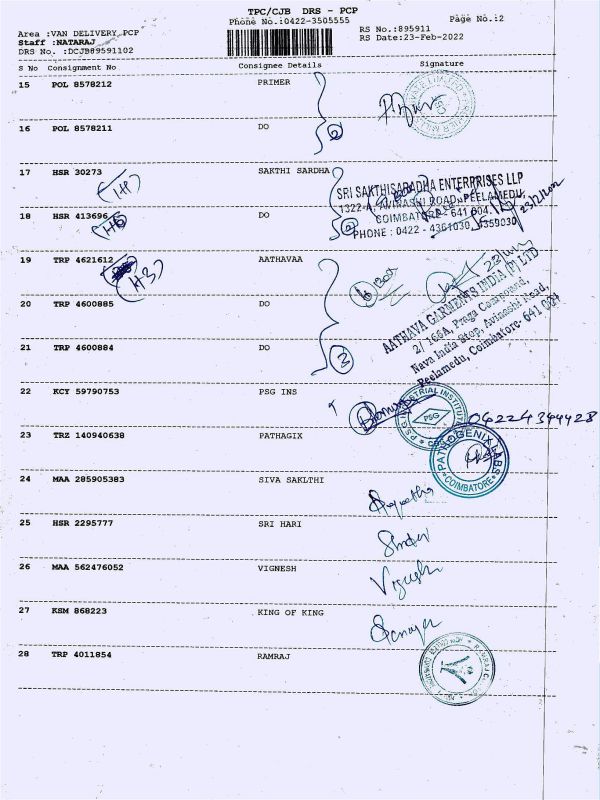 TPC/CJB DRS - PCP
Phone No.:0422-3505555
Page No.:2
Area :VAN DELIVERY PCP
Staff :NATARAJ
DRS No. :DCJB89591102
RS No.:895911
RS Date:23-Feb-2022
S No Consignment No Consignee Details Signature
15 POL 8578212 PRIMER
16 POL 8578211 DO
2
17 HSR 30273 SAKTHI SARDHA
SRI SAKTHISARADHA ENTERPRISES LLP
1322-A, AVINASHI ROAD, PEELAMEDU,
COIMBATORE - 641 004.
PHONE : 0422 - 4361030, 4359030
23/2/2022
18 HSR 413696 DO
2
19 TRP 4621612 AATHAVAA
(H3)
AATHAVA GARMENTS INDIA (P) LTD
2/ 166A, Praga Compound,
Nava India Stop, Avinashi Road,
Peelamedu, Coimbatore- 641 004
20 TRP 4600885 DO
21 TRP 4600884 DO
3
22 KCY 59790753 PSG INS
PSG INDUSTRIAL INSTITUTE
PSG
04224344428
23 TRZ 140940638 PATHAGIX
PATHOGENIX LABS
COIMBATORE
24 MAA 285905383 SIVA SAKLTHI
25 HSR 2295777 SRI HARI
26 MAA 562476052 VIGNESH
Vignesh
27 KSM 868223 KING OF KING
28 TRP 4011854 RAMRAJ